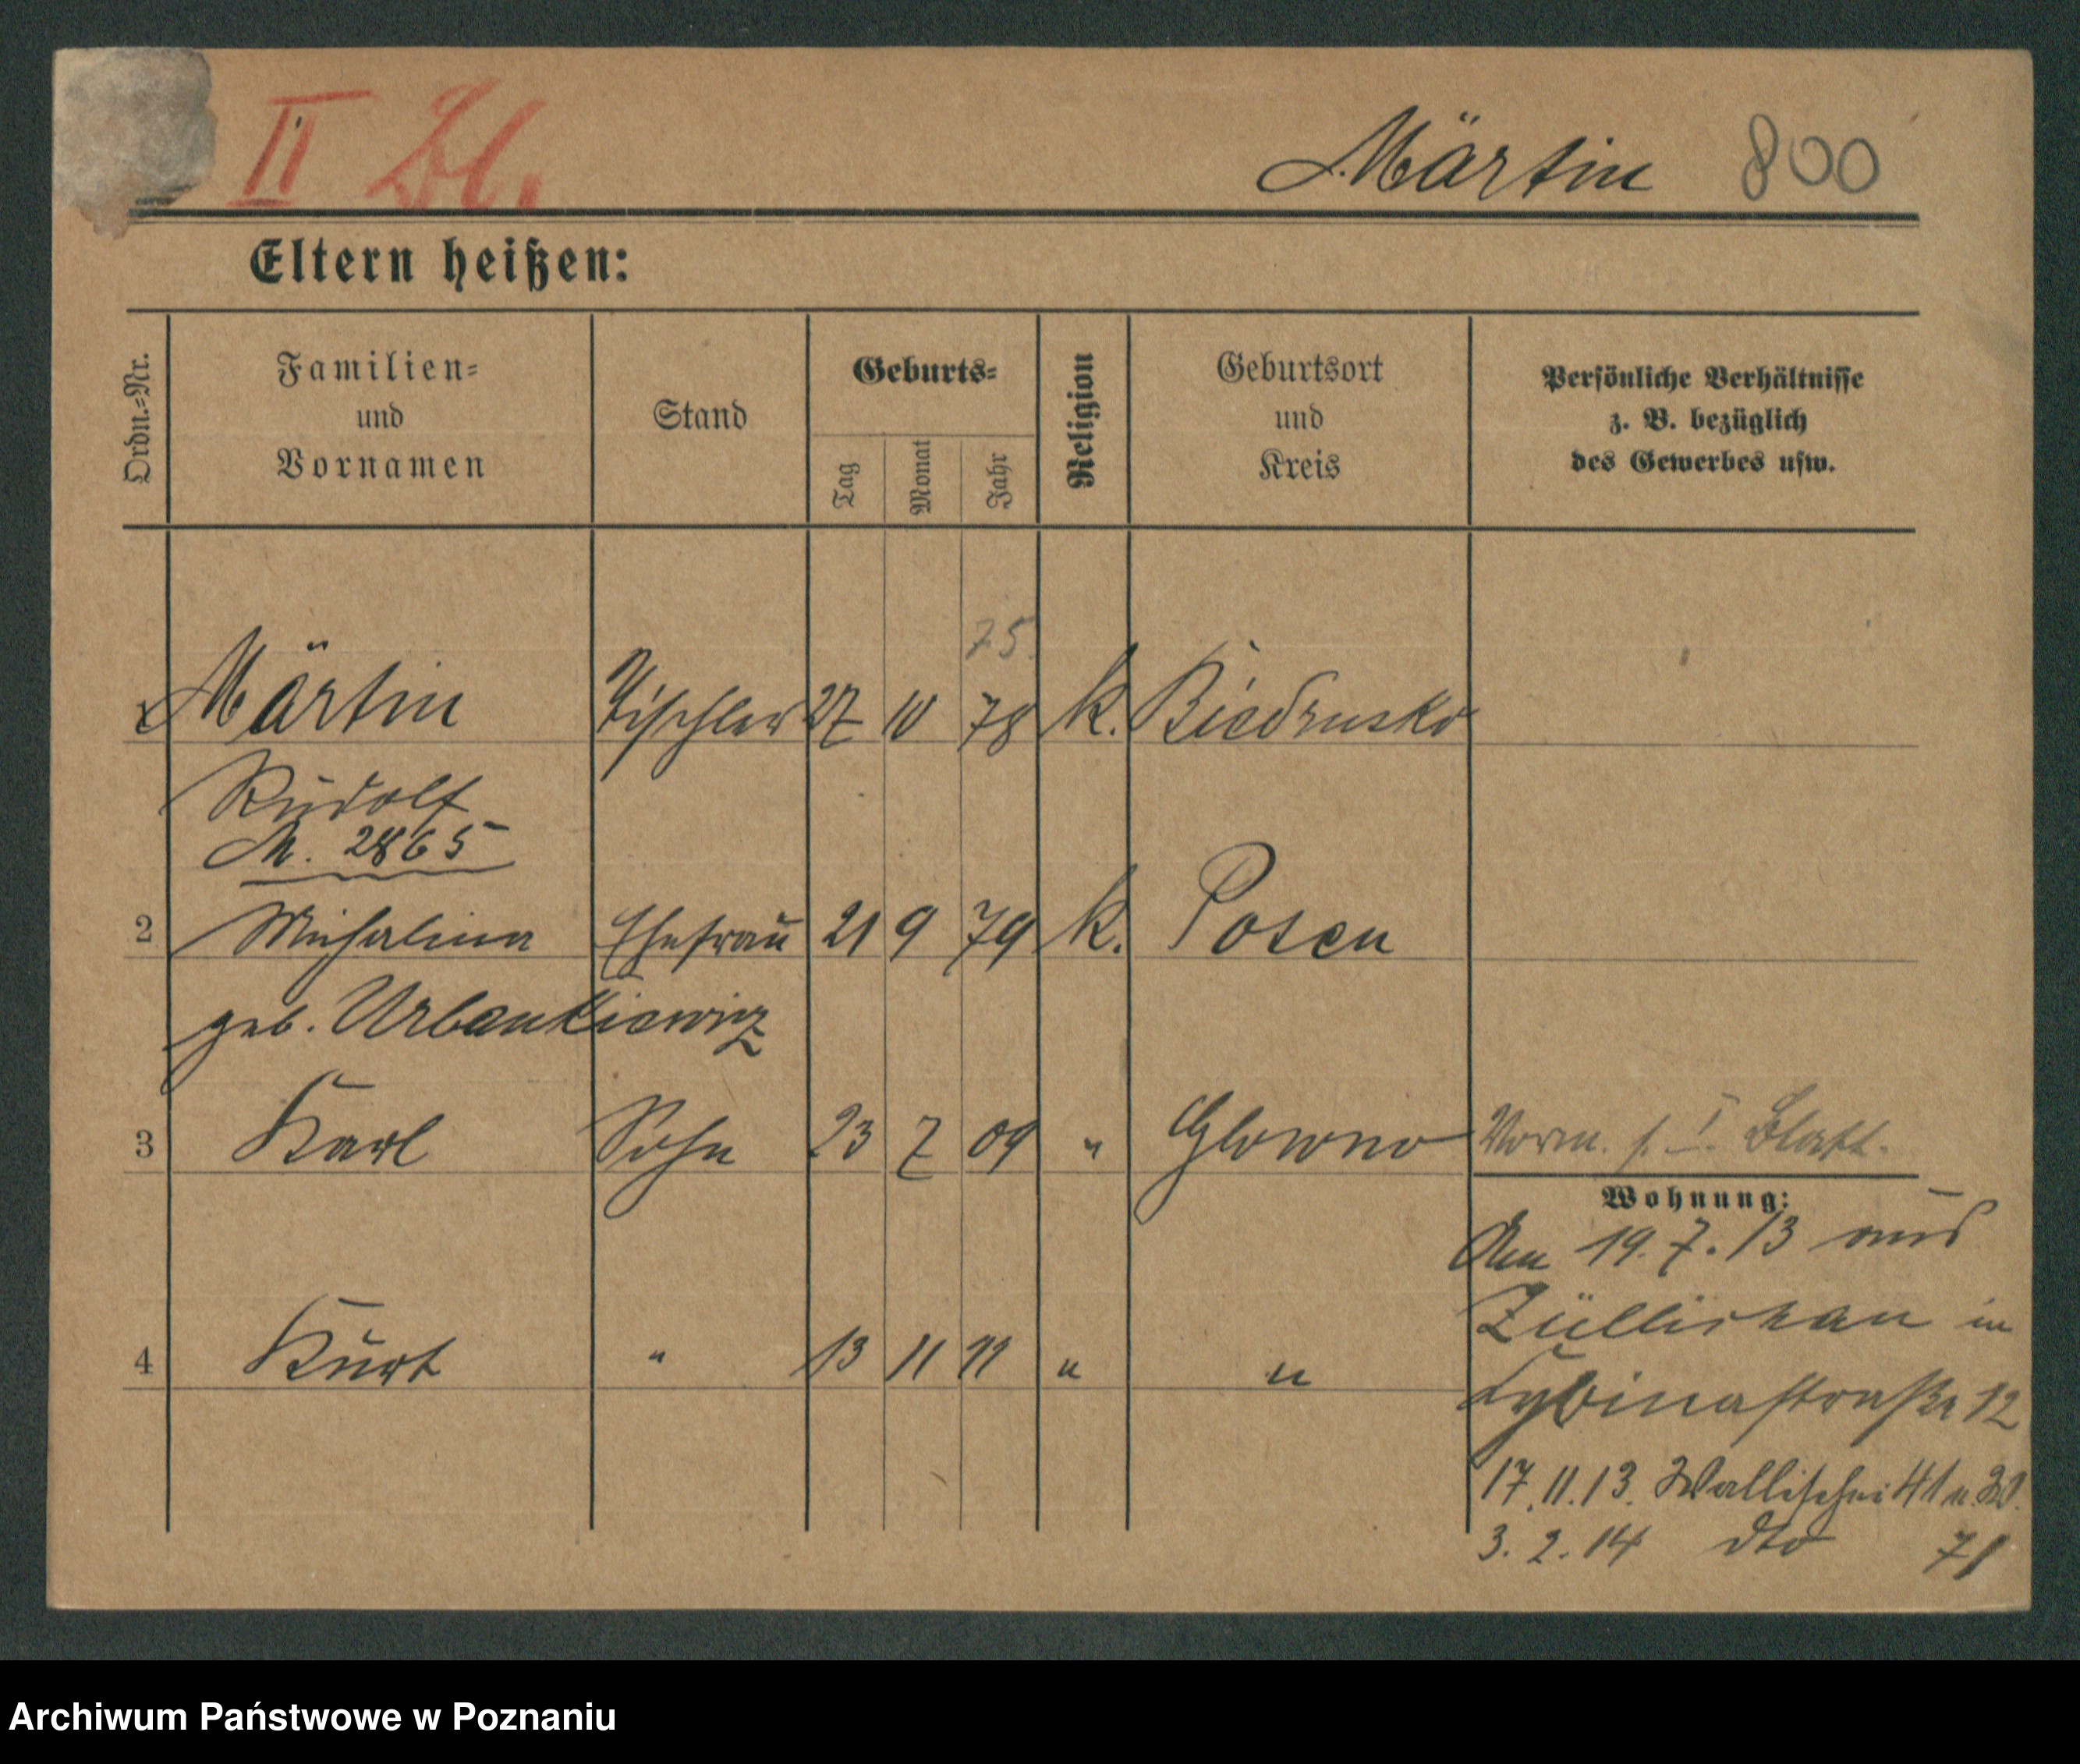 II Bl.
Märtin 800
Eltern heißen:
Ordn.-Nr.
Familien-
und
Vornamen
Stand
Geburts-
Tag
Monat
Jahr
Religion
Geburtsort
und
Kreis
Persönliche Verhältnisse
z. B. bezüglich
des Gewerbes usw.
75.
1 Märtin Tischler 27 10 78 k. Biedrusko
Rudolf
M. 2865
2 Michalina Ehefrau 21 9 79 k. Posen
geb. Urbankiewicz
3 Karl Sohn 23 7 09 " Glowno
Vorm. s. I. Blatt.
Wohnung:
Am 19.7.13 aus
Züllichau in
Cybinastraße 12
4 Kurt " 13 11 11 " "
17.11.13. Wallischei 41
3.2.14 dto 71
Archiwum Państwowe w Poznaniu